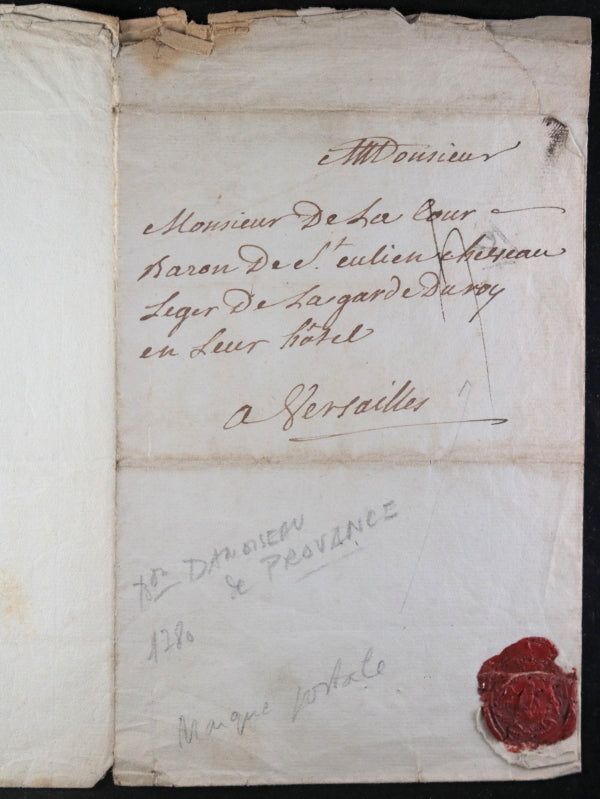 Monsieur
Monsieur De La Cour
Baron De St. eulien cheveau
Leger De La garde Du roy
en Leur hôtel
a Versailles
DAMOISEAU
de PROVANCE
1780
Marque postale